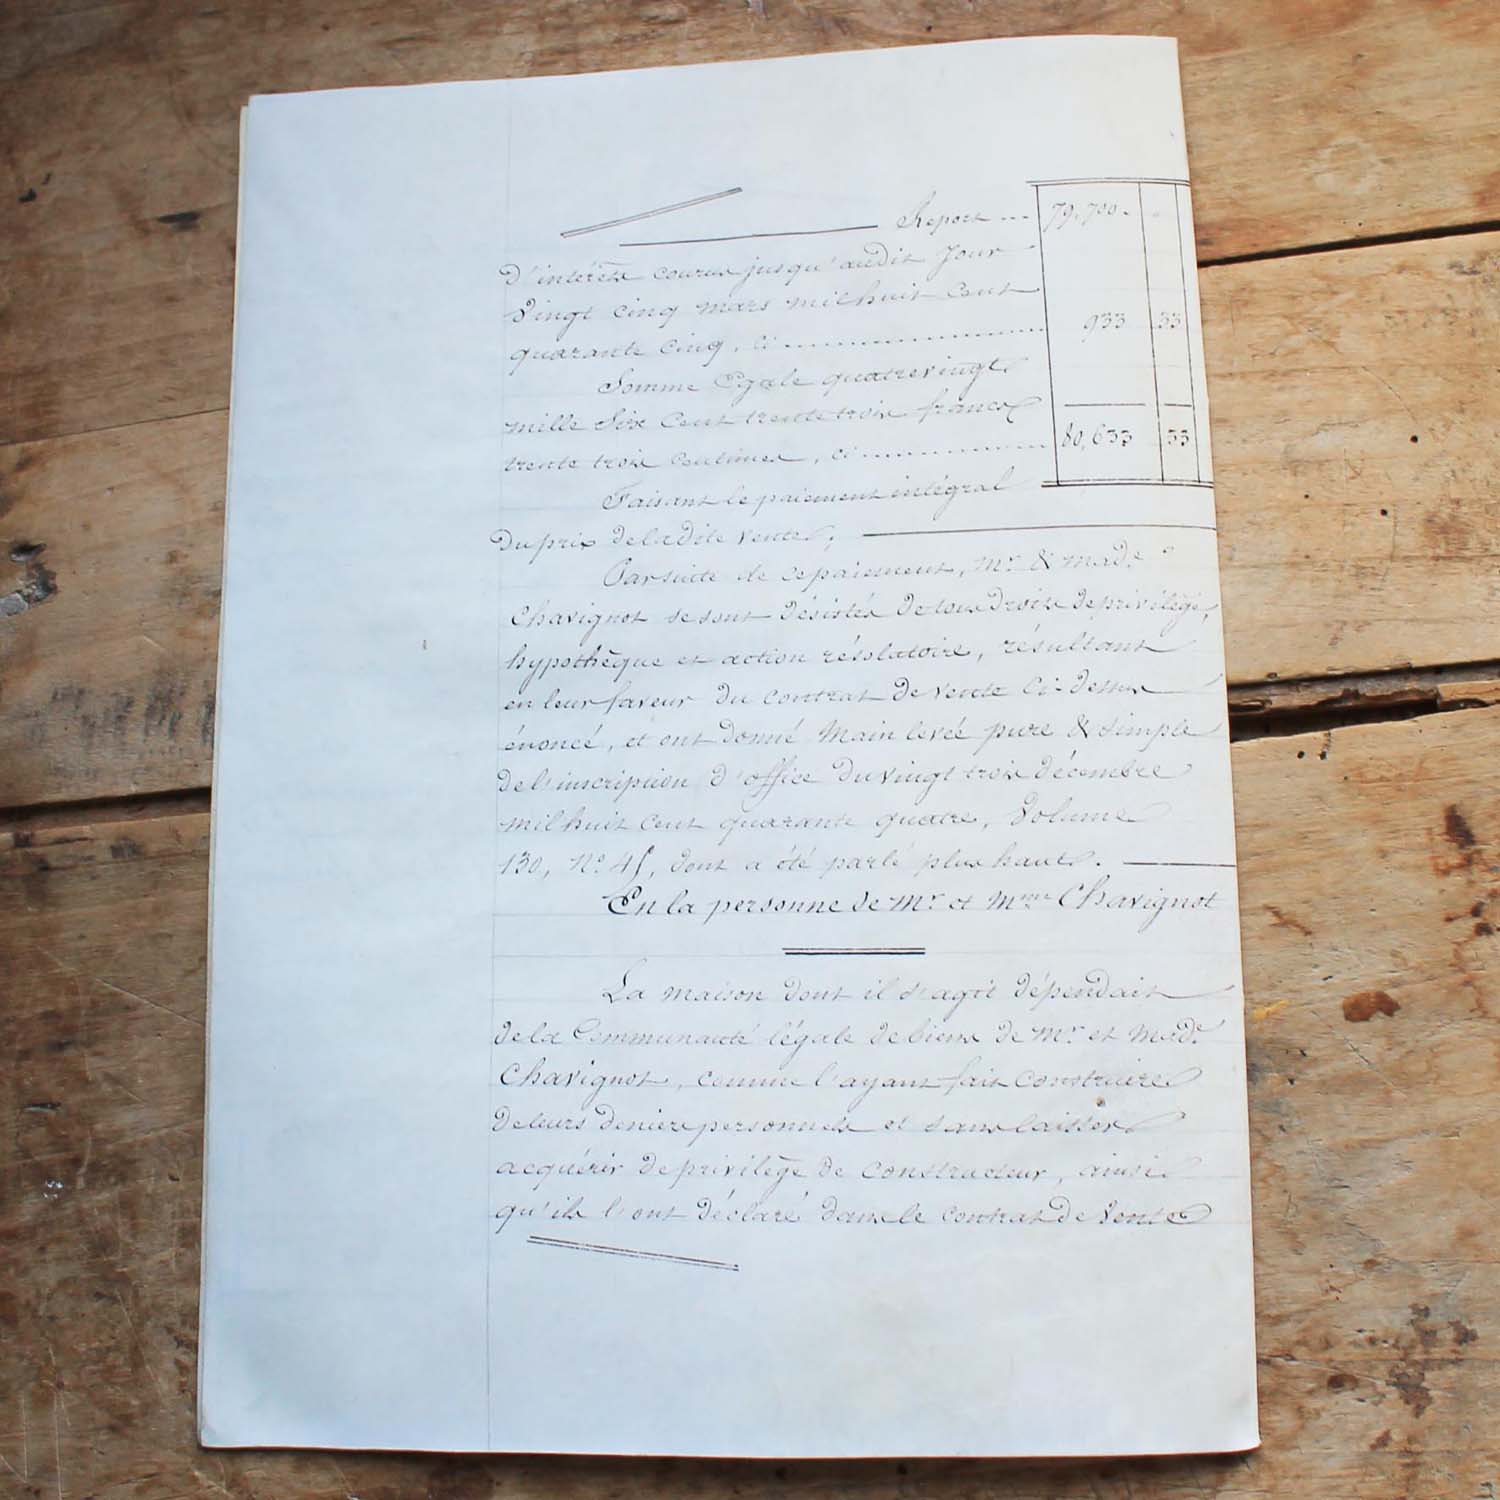 Report ... 79,700 . "
D'intérêts courus jusqu'audit Jour
Vingt cinq mars mil huit cent
quarante cinq, ci .......... 933 33
Somme Egale quatrevingt
mille Six Cent trente trois francs
trente trois Centimes, ci .......... 80,633 33
Faisant le paiement intégral
Du prix de ladite vente;
Par suite de ce paiement, Mr. & Made.
Chavignot se sont désistés de tous droits de privilège,
hypothèque et action résolutoire, résultant
en leur faveur du contrat de vente Ci-dessus
énoncé, et ont donné Main levée pure & simple
de l'inscription d'office du vingt trois décembre
mil huit cent quarante quatre, Volume
130, No. 45, dont a été parlé plus haut.
En la personne de Mr. et Mme Chavignot
La maison dont il s'agit dépendait
de la Communauté légale de biens de Mr. et Made.
Chavignot, comme l'ayant fait construire
de leurs deniers personnels et sans laisser
acquérir de privilège de constructeur, ainsi
qu'ils l'ont déclaré dans le contrat de Vente